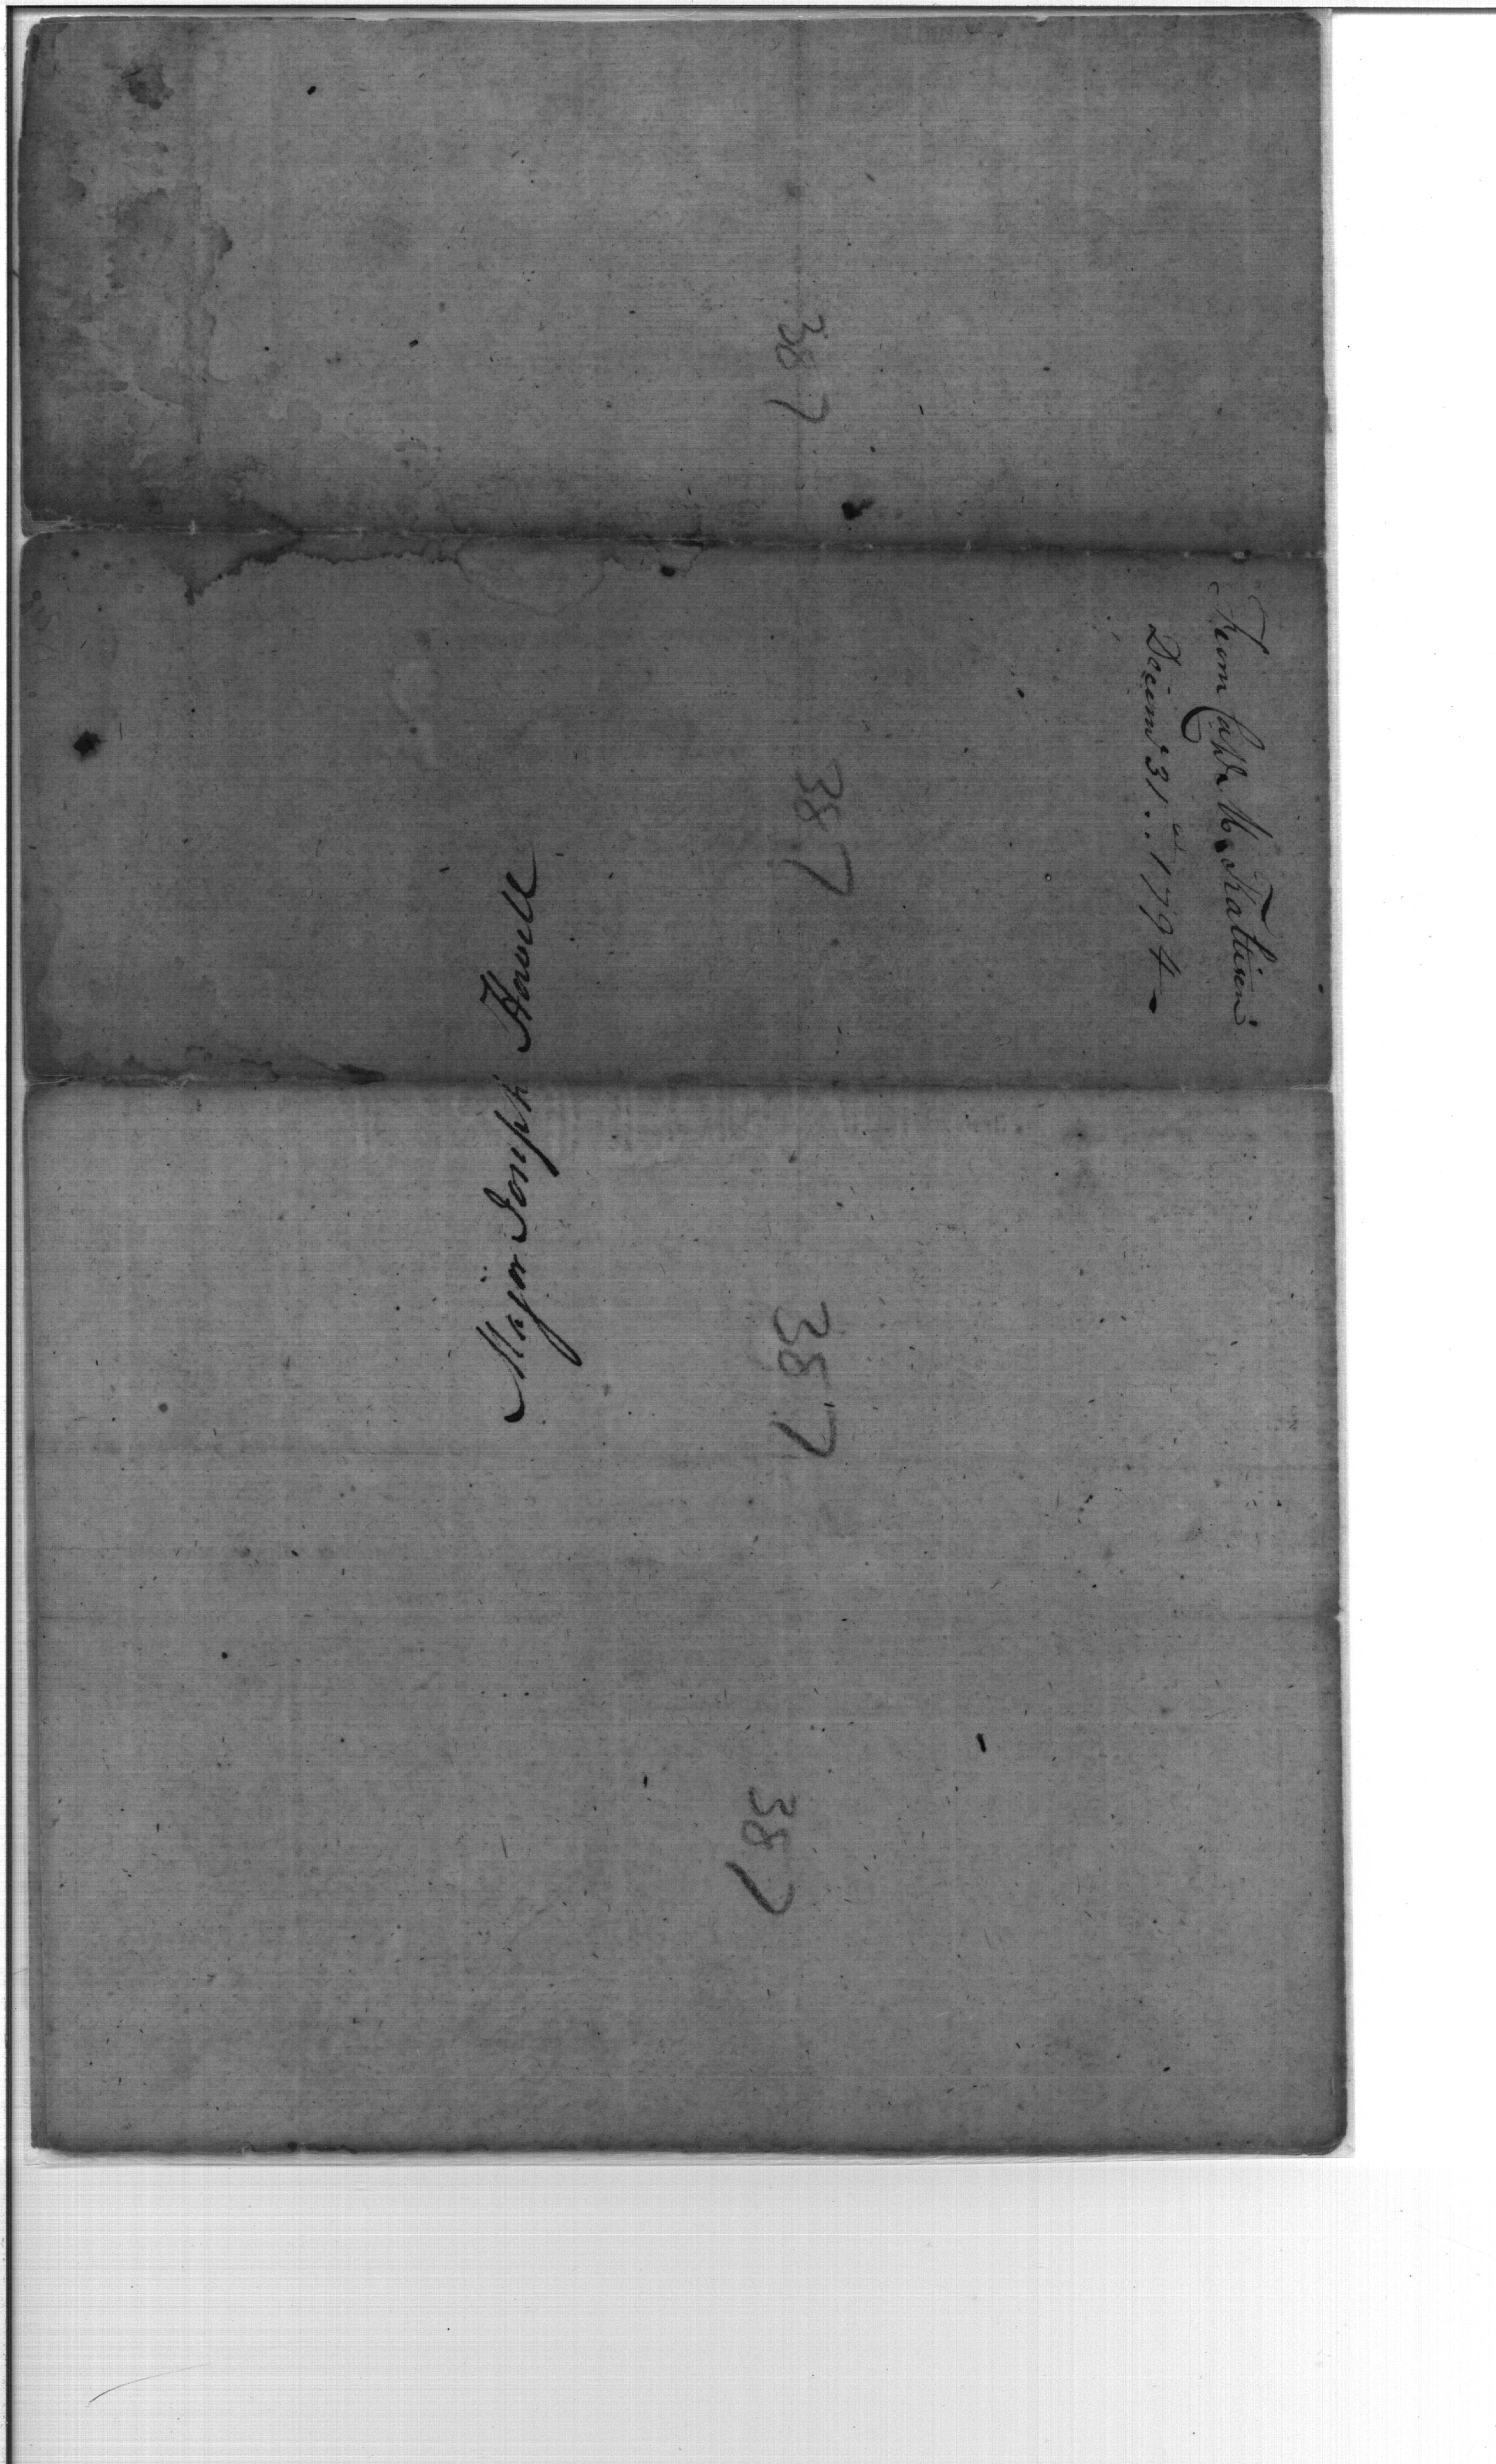 From Capt.
Decemr 31st 1794
Major Joseph Howell
387
387
387
387